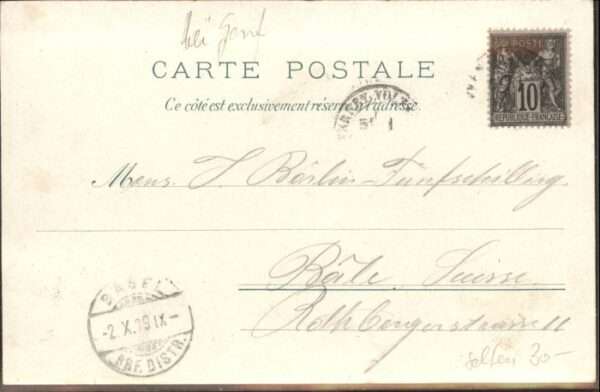 bei Genf
CARTE POSTALE
Ce côté est exclusivement réservé à l'adresse.
POSTE
10
REPUBLIQUE FRANÇAISE
Mons. J. Börlin-Fünfschilling.
Bâle. Suisse.
Rothbergerstrasse 11
BASEL
-2.X.99 IX-
BRF. DISTR.
selten 20-